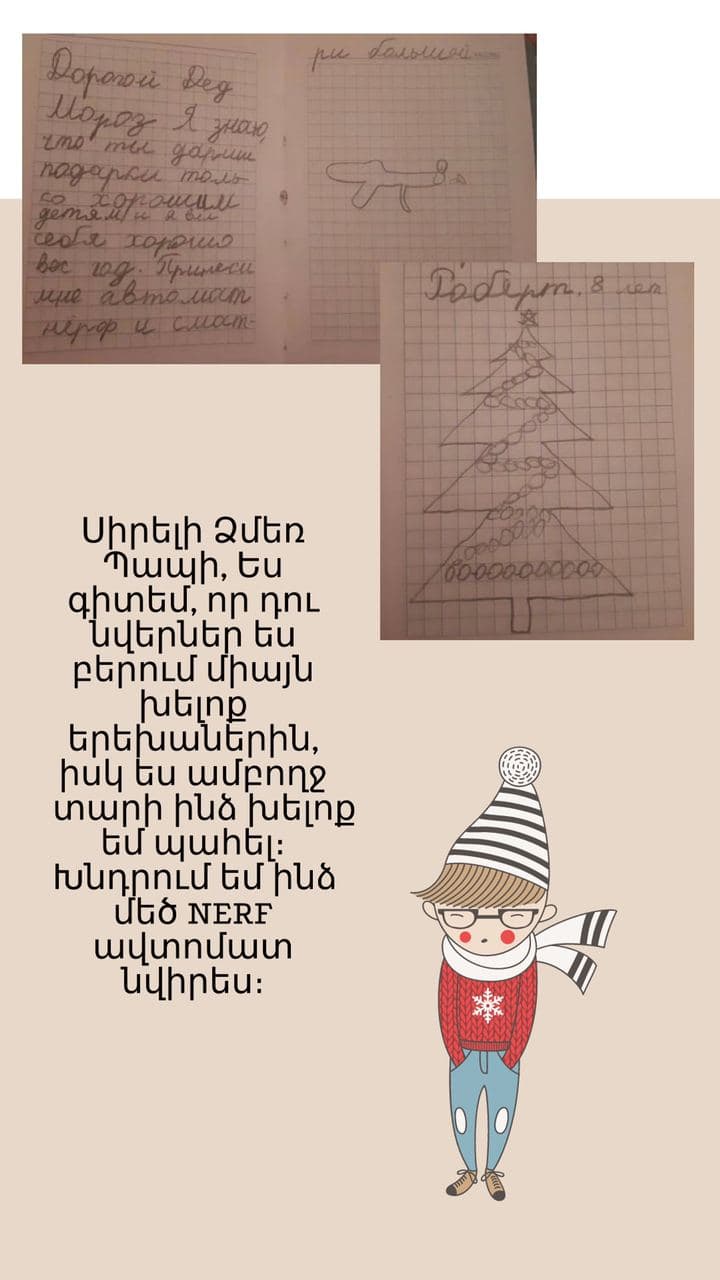 Дорогой Дед
Мороз Я знаю,
что ты дариш
подарки толь-
ко хорошим
детям и я вёл
себя хорошо
вес год. Принеси
мне автомат
нёрф и смот-
ри большой
Роберт. 8 лет
Սիրելի Ձմեռ
Պապի, Ես
գիտեմ, որ դու
նվերներ ես
բերում միայն
խելոք
երեխաներին,
իսկ ես ամբողջ
տարի ինձ խելոք
եմ պահել:
Խնդրում եմ ինձ
մեծ NERF
ավտոմատ
նվիրես: